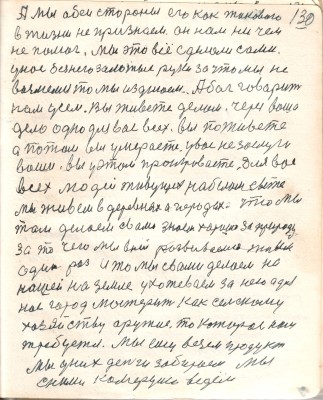 130
А мы обои стороны его как такового
в жизни не признаем. он нам ни чем
не помог, мы это всё сделали сами.
у нас без него золотые руки за что мы не
возмемся то мы изделаем. А бог говорит
нам усем. Вы живете делом, через ваше
дело одно для вас всех. вы поживете
а потом вы умераете, у вас не заслуги
ваши, вы у этом проигрываете. Для вас
всех людей живущих на белом свете
мы живем в деревнях и городах. что мы
там делаем с вами знаем хорошо за природу
за то чего мы в ней развиваемся живем
один раз и то мы с вами делаем на
нашей на земле ухожеваем за него одно
нас город материт как сельскому
хозяйству оружие, то которое ему
требуется. Мы ему везем продукт
мы у них деньги забираем мы
с ними комерцию ведем